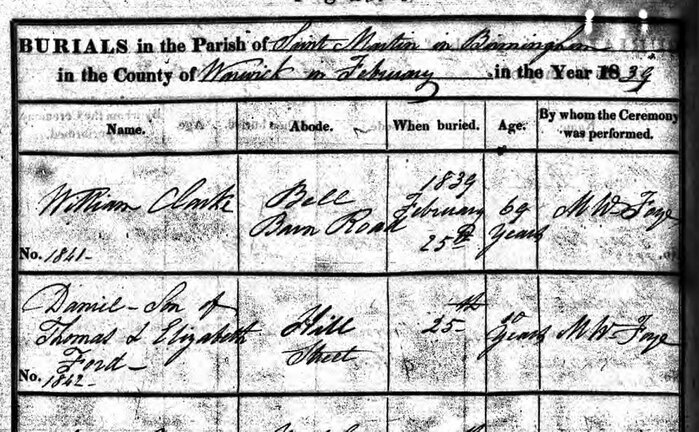 BURIALS in the Parish of Saint Martin in Birmingham
in the County of Warwick in February in the Year 1839
Name. Abode. When buried. Age. By whom the Ceremony was performed.
William Clarke
No. 1841
Bell
Barn Road
1839
February
25th
69
Years
M W Foye
Daniel Son of
Thomas & Elizabeth
Ford
No. 1842
Hill
Street
25th
10
Years
M W Foye